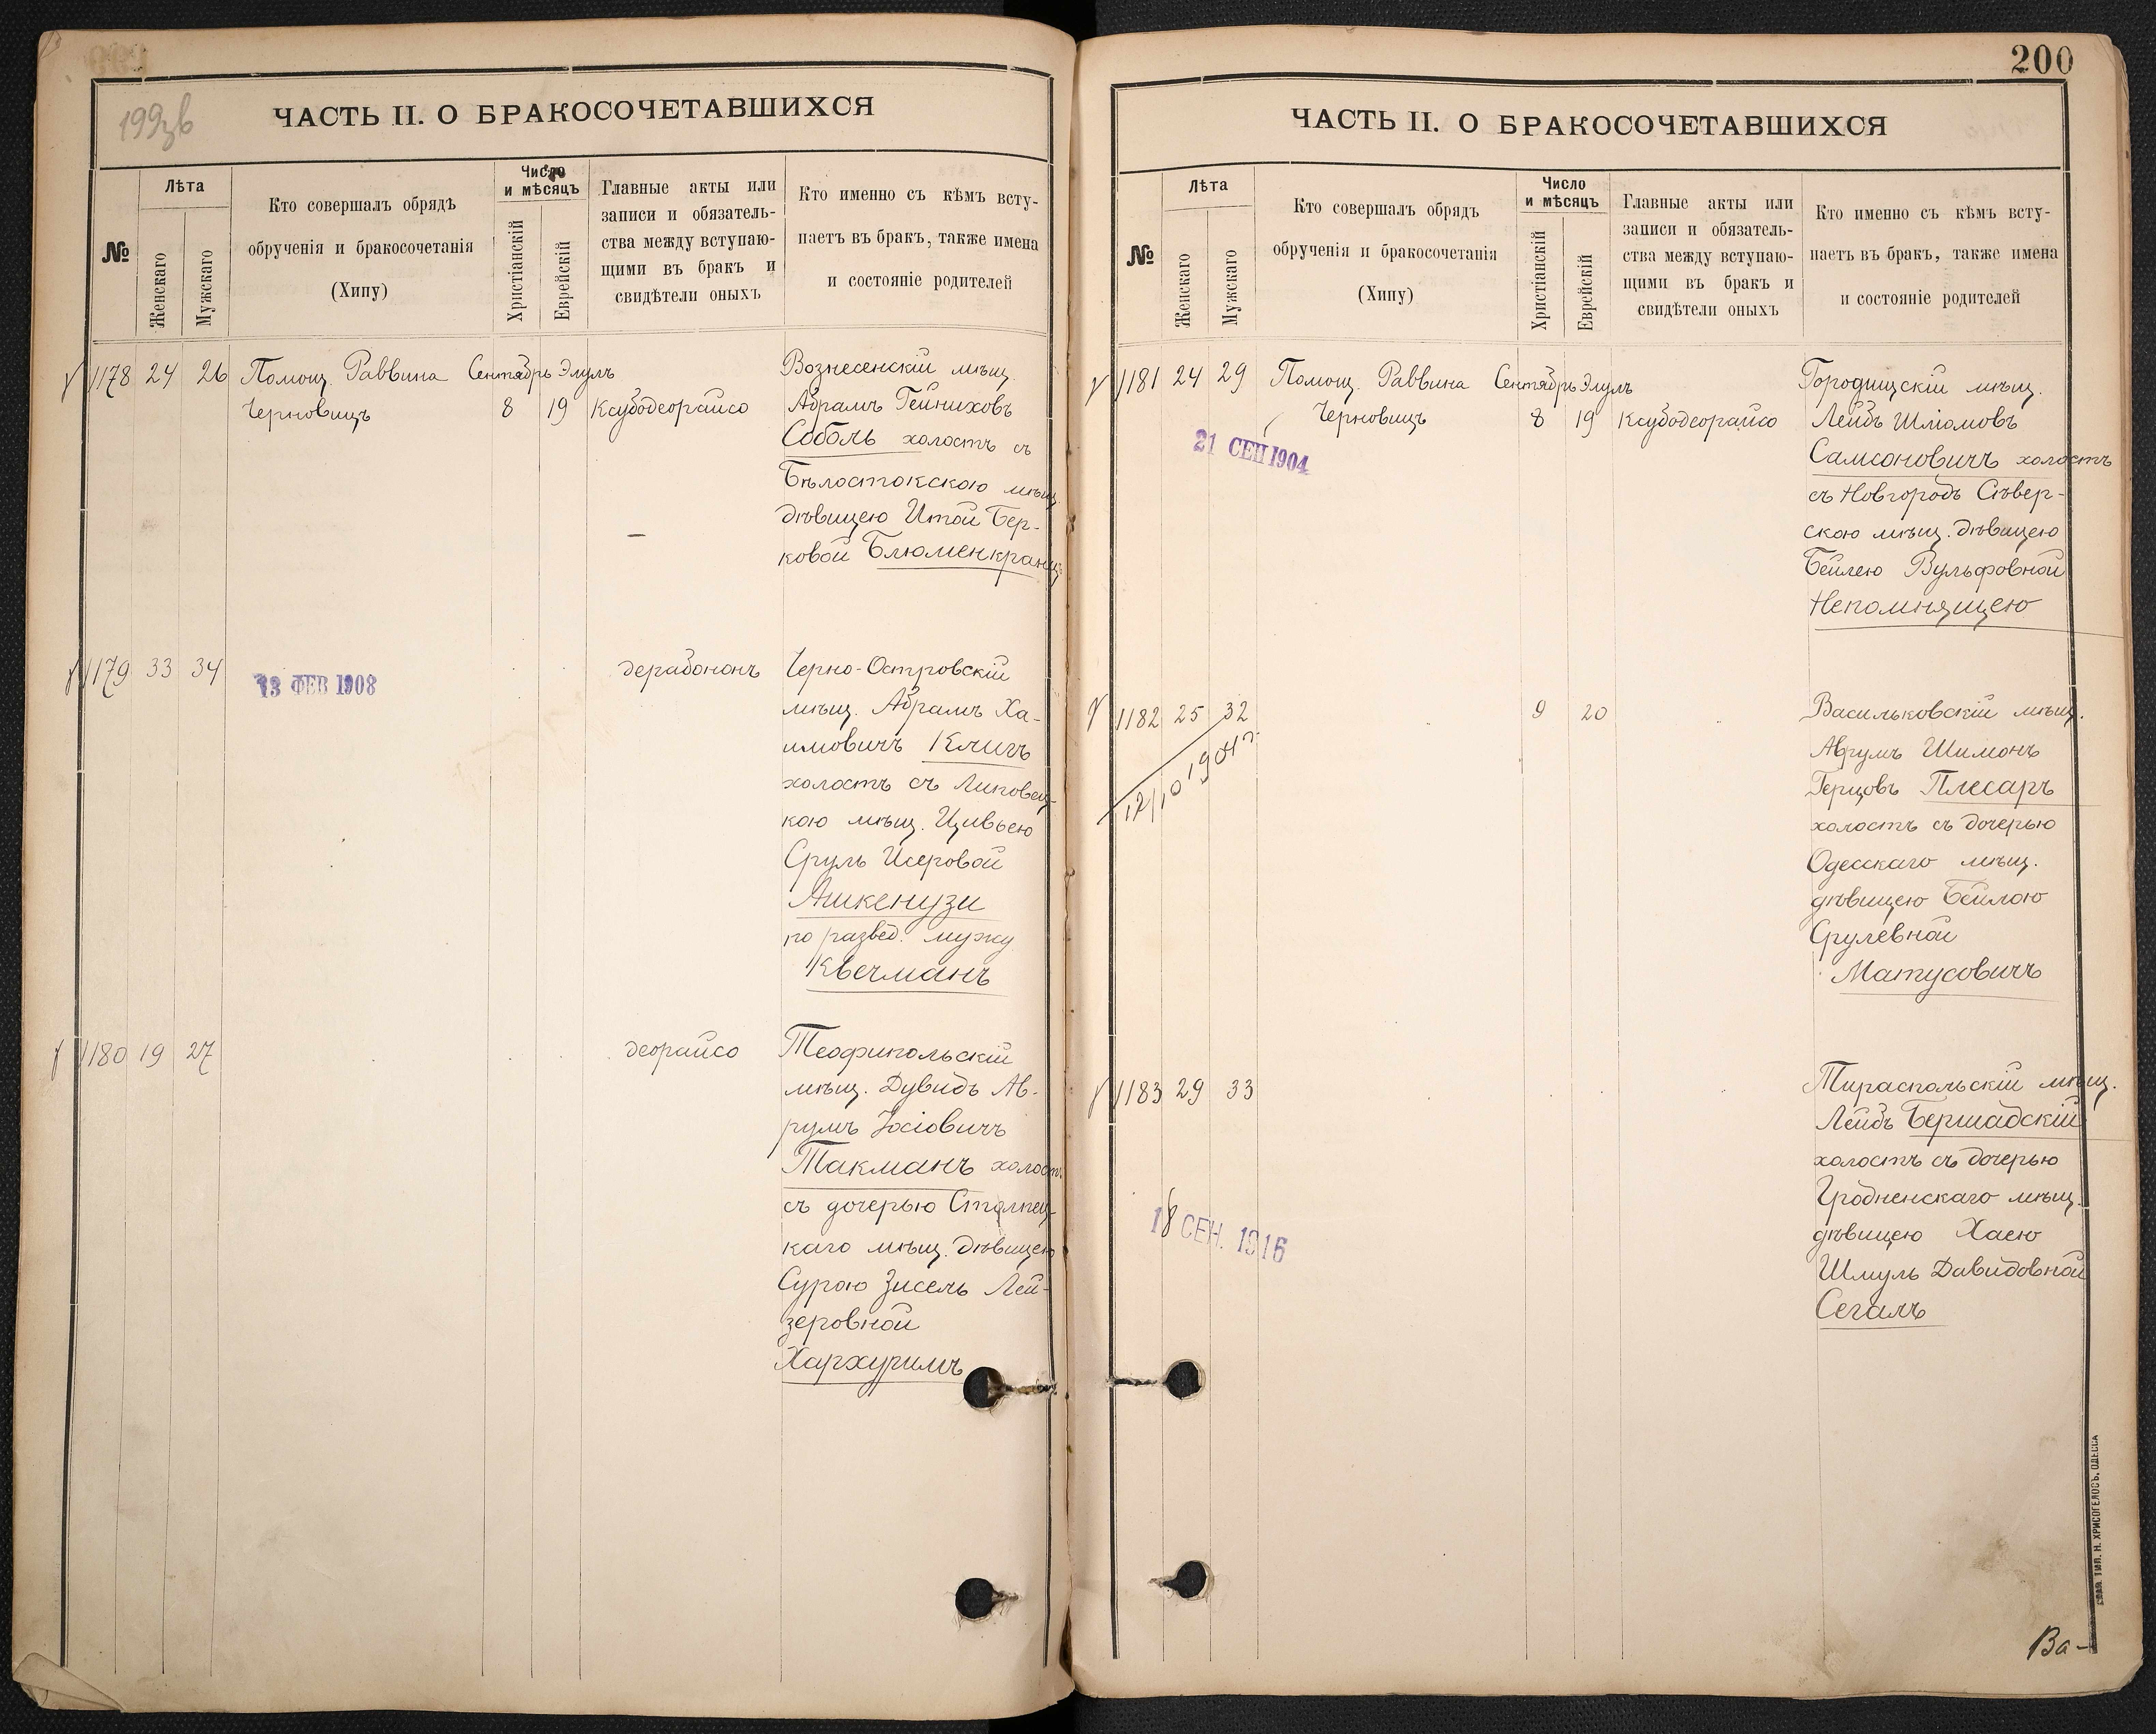 199зв
ЧАСТЬ II. О БРАКОСОЧЕТАВШИХСЯ
№
Лѣта
Женскаго
Мужскаго
Кто совершалъ обрядъ
обрученія и бракосочетанія
(Хипу)
Число
и мѣсяцъ
Христіанскій
Еврейскій
Главные акты или
записи и обязатель-
ства между вступаю-
щими въ бракъ и
свидѣтели оныхъ
Кто именно съ кѣмъ всту-
паетъ въ бракъ, также имена
и состояніе родителей
1178 24 26 Помощ. Раввина Сентябрь Элулъ
Черновицъ 8 19 Ксубодеорайсо
Вознесенскій мѣщ.
Абрамъ Гейниховъ
Соболь холостъ съ
Бѣлостокскою мѣщ.
дѣвицею Итой Бер-
ковой Блюменкранцъ
1179 33 34
13 ФЕВ 1908
дерабононъ
Черно-Островскій
мѣщ. Абрамъ Ха-
имовичъ Кличъ
холостъ съ Липовец-
кою мѣщ. Цивьею
Сруль Исеровой
Ашкенузи
по развед. мужу
Квечманъ
1180 19 27
деорайсо
Теофипольскій
мѣщ. Дувидъ Ав-
румъ Іосіовичъ
Такманъ холост.
съ дочерью Столпец-
каго мѣщ. дѣвицею
Сурою Зисель Лей-
зеровной
Хархуримъ
200
ЧАСТЬ II. О БРАКОСОЧЕТАВШИХСЯ
№
Лѣта
Женскаго
Мужскаго
Кто совершалъ обрядъ
обрученія и бракосочетанія
(Хипу)
Число
и мѣсяцъ
Христіанскій
Еврейскій
Главные акты или
записи и обязатель-
ства между вступаю-
щими въ бракъ и
свидѣтели оныхъ
Кто именно съ кѣмъ всту-
паетъ въ бракъ, также имена
и состояніе родителей
1181 24 29 Помощ. Раввина Сентябрь Элулъ
Черновицъ 8 19 Ксубодеорайсо
21 СЕН 1904
Городищскій мѣщ.
Лейбъ Шліомовъ
Самсоновичъ холостъ
съ Новгородъ Сѣвер-
скою мѣщ. дѣвицею
Бейлею Вульфовной
Непомнящею
1182 25 32
12/10 1904 г.
9 20
Васильковскій мѣщ.
Аврумъ Шимонъ
Герцовъ Плесаръ
холостъ съ дочерью
Одесскаго мѣщ.
дѣвицею Бейлою
Срулевной
Матусовичъ
1183 29 33
18 СЕН. 1916
Тираспольскій мѣщ.
Лейбъ Бершадскій
холостъ съ дочерью
Гродненскаго мѣщ.
дѣвицею Хаею
Шмуль Давидовной
Сегалъ
ТИП. Н. ХРИСОГЕЛОСЪ, ОДЕССА
Ва-